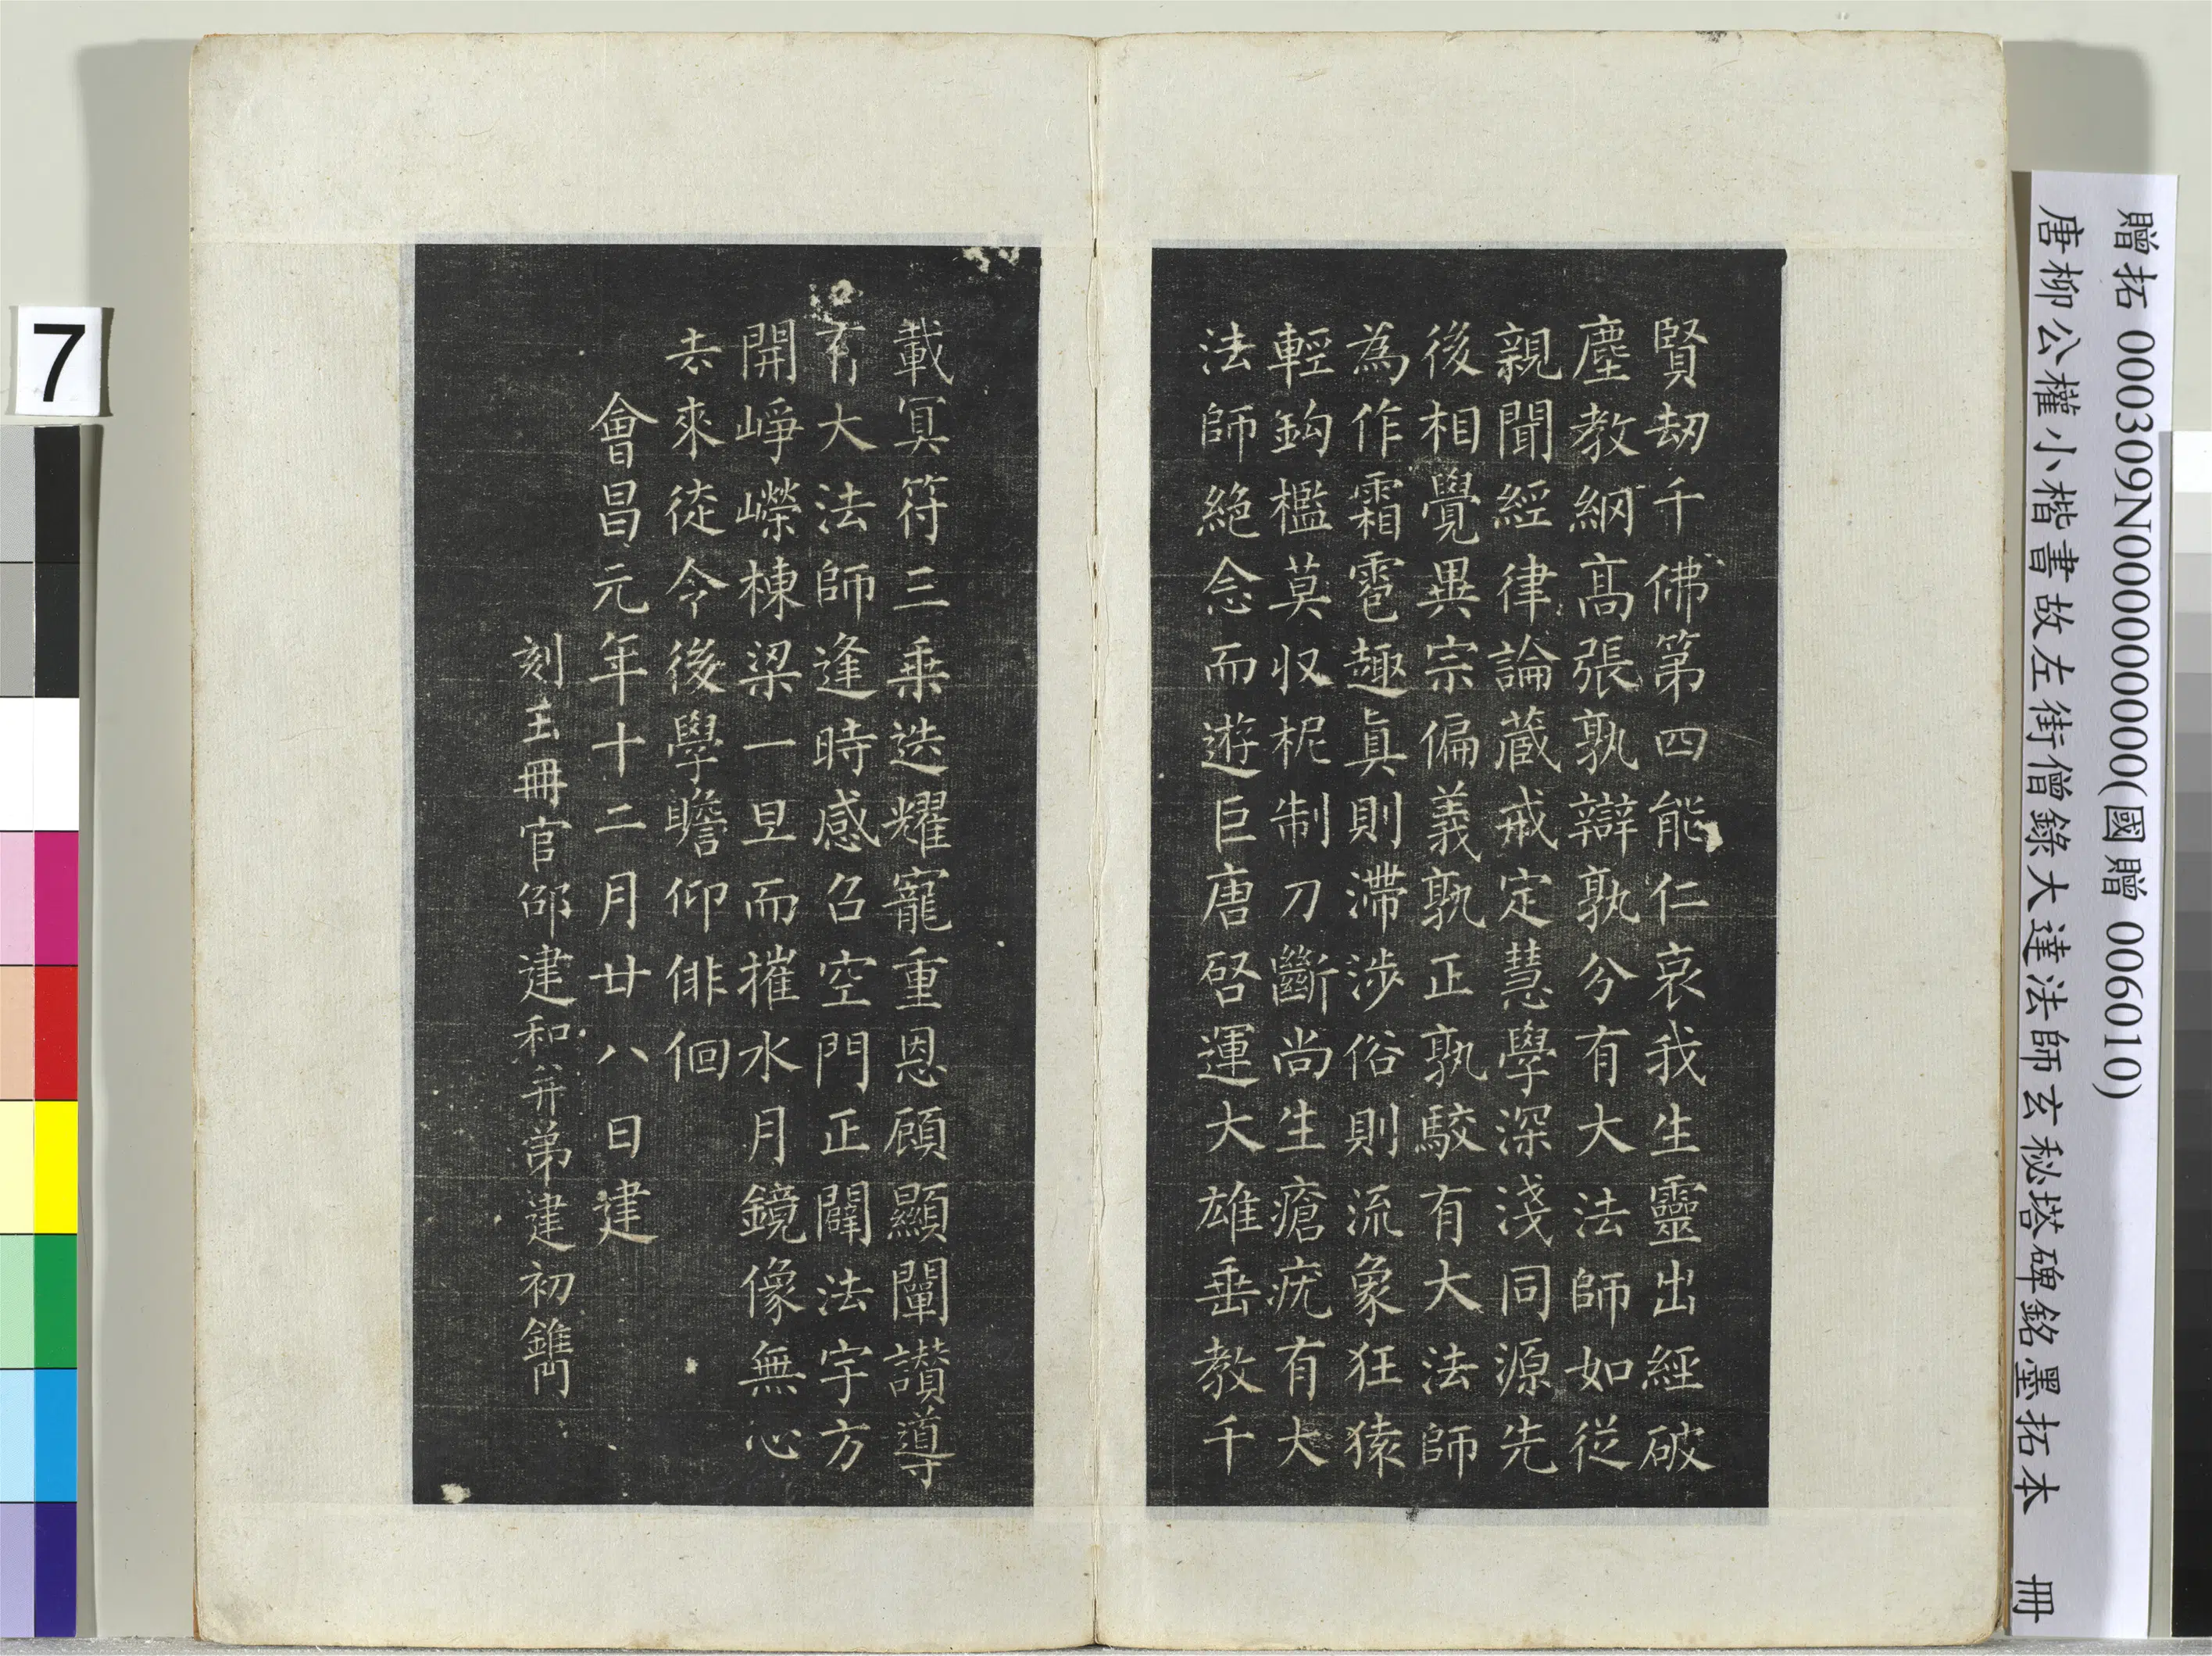 賢劫千佛第四能仁哀我生靈出經破
塵教綱髙張孰辯孰分有大法師如從
親聞經律論藏戒定慧學深淺同源先
後相覺異宗偏義孰正孰駮有大法師
為作霜雹趣真則滯涉俗則流象狂猿
輕鈎檻莫収柅制刀斷尚生瘡疣有大
法師絕念而遊巨唐啓運大雄垂教千
載冥符三乗迭耀寵重恩顧顯闡讃導
有大法師逢時感召空門正闢法宇方
開崢嶸棟梁一旦而摧水月鏡像無心
去來徒令後學瞻仰俳佪
會昌元年十二月廿八日建
刻玉冊官邵建和并弟建初鐫
贈拓 000309N000000000(國贈 006010)
唐柳公權小楷書故左街僧錄大達法師玄秘塔碑銘墨拓本 冊
7